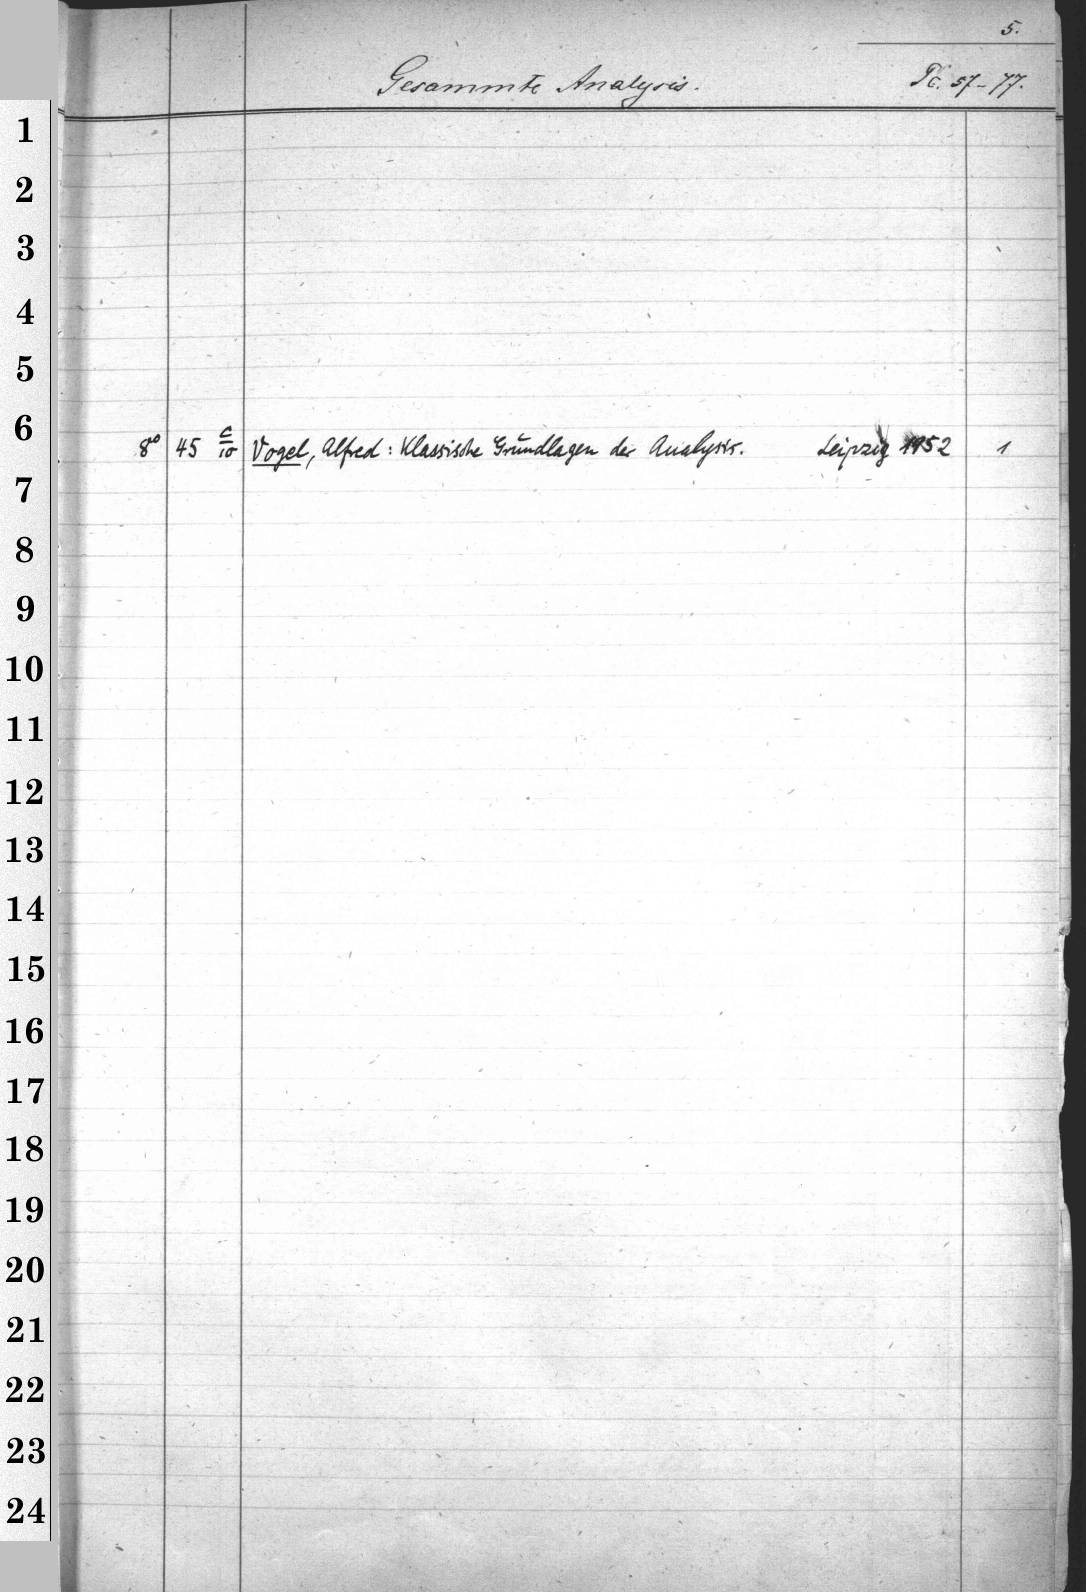 5.
Gesammte Analysis. Pc. 57-77.
1
2
3
4
5
6
8° 45 c/10 Vogel, Alfred: Klassische Grundlagen der Analysis. Leipzig 1952 1
7
8
9
10
11
12
13
14
15
16
17
18
19
20
21
22
23
24